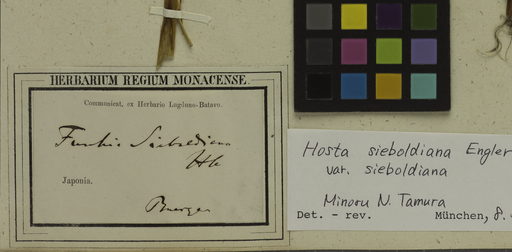 HERBARIUM REGIUM MONACENSE.
Communicat. ex Herbario Lugduno-Batavo.
Funkia Sieboldiana
Hk
Japonia.
Buerger
Hosta sieboldiana Engler
var. sieboldiana
Minoru N. Tamura
Det. - rev. München, 8.